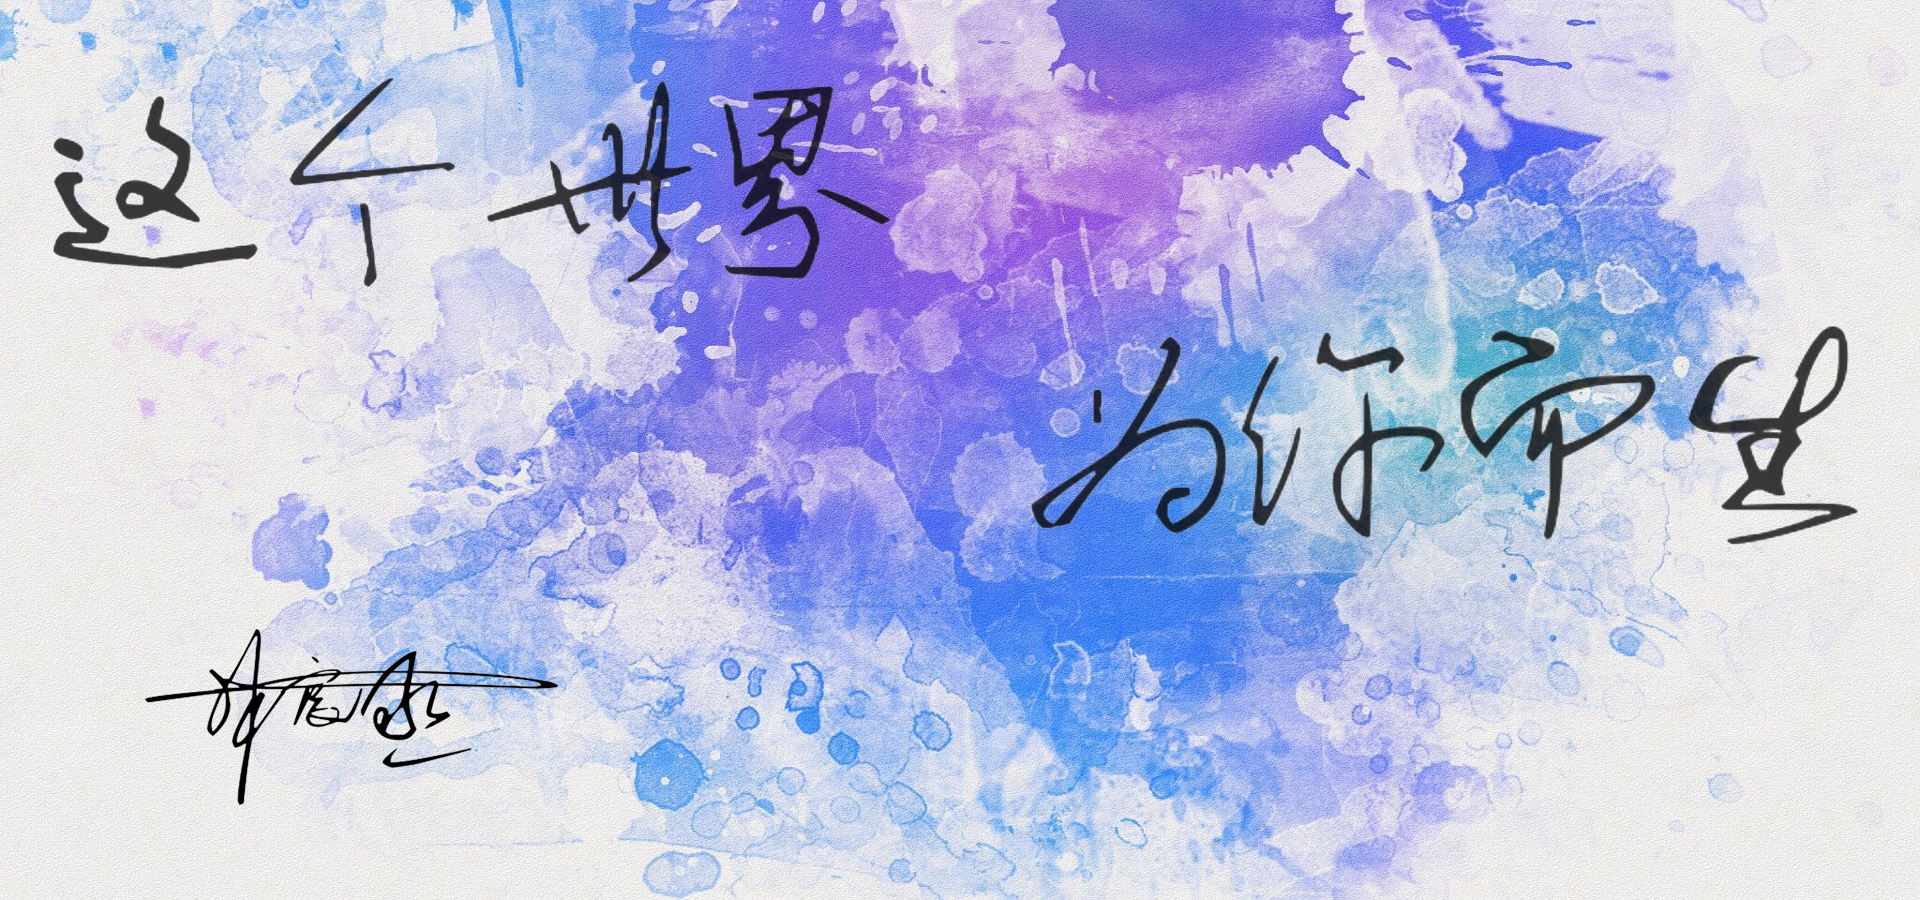 这个世界
为你而生